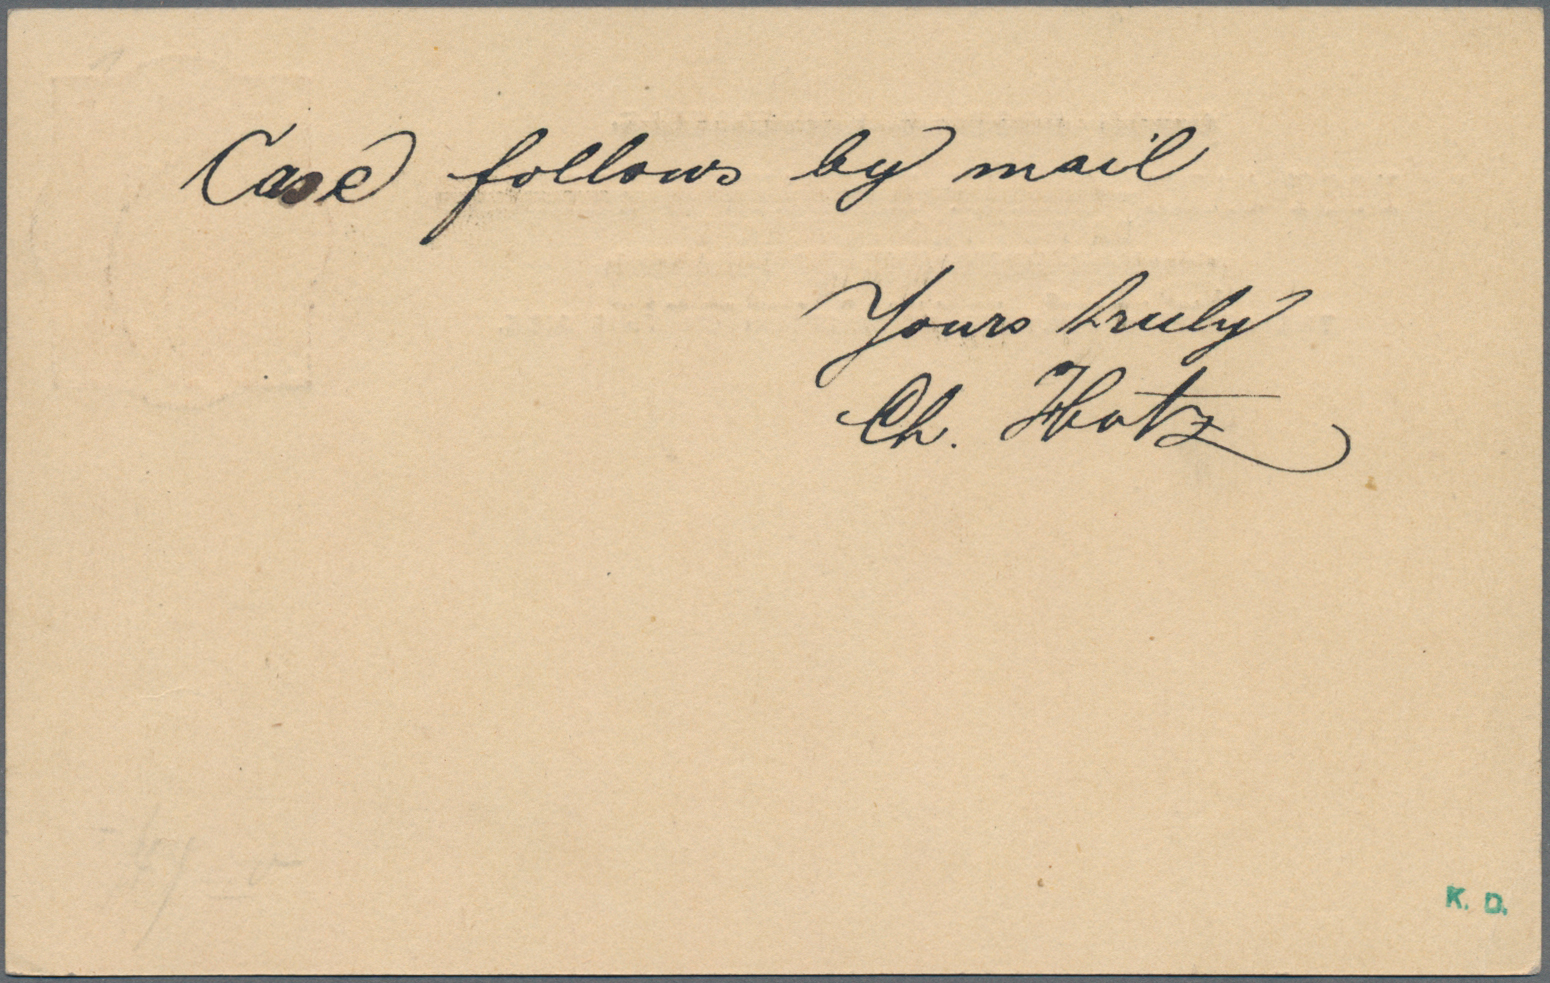 Case follows by mail
Yours truly
Ch. Hotz
K. D.